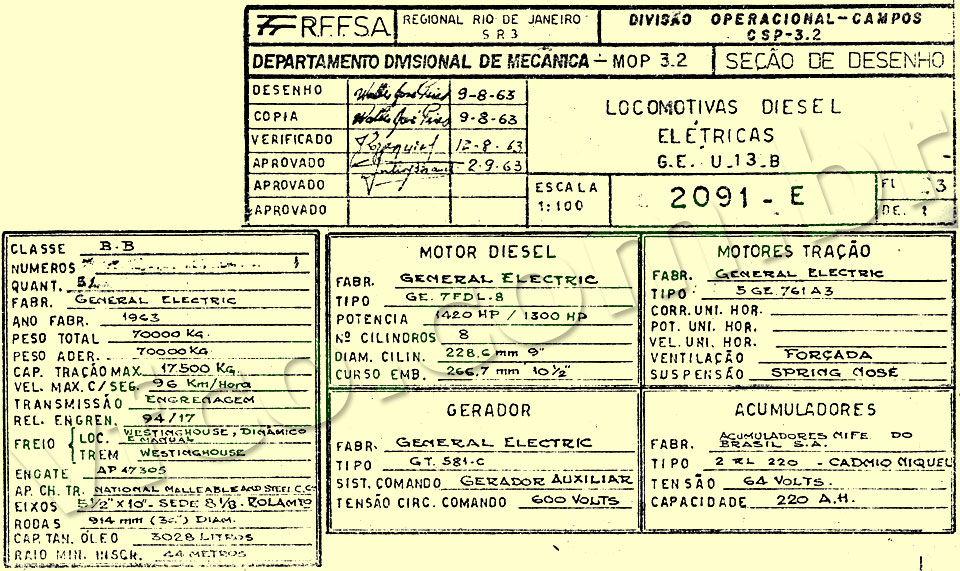 R.F.F.S.A. REGIONAL RIO DE JANEIRO S R 3 DIVISÃO OPERACIONAL-CAMPOS CSP-3.2
DEPARTAMENTO DIVISIONAL DE MECÂNICA - MOP 3.2 SEÇÃO DE DESENHO
DESENHO 9-8-63
COPIA 9-8-63
VERIFICADO 12-8-63
APROVADO 2-9-63
APROVADO
APROVADO
LOCOMOTIVAS DIESEL
ELÉTRICAS
G.E. U_13_B
ESCALA
1:100
2091 - E
FL 3
DE. 1
CLASSE B-B
NUMEROS
QUANT.
FABR. GENERAL ELECTRIC
ANO FABR. 1963
PESO TOTAL 70000 KG.
PESO ADER. 70000 KG.
CAP. TRAÇÃO MAX. 17.500 KG.
VEL. MAX. C/SEG. 96 KM/HORA
TRANSMISSÃO ENGRENAGEM
REL. ENGREN. 94/17
FREIO LOC. WESTINGHOUSE, DINÂMICO E MANUAL
TREM WESTINGHOUSE
ENGATE AP 47305
AP. CH. TR. NATIONAL MALLEABLE AND STEEL
EIXOS 5 1/2" X 10" - SEDE 8 1/8 - ROLAMTO
RODAS 914 mm (36") DIAM.
CAP. TAN. ÓLEO 3028 LITROS
RAIO MIN. INSCR. 44 METROS
MOTOR DIESEL
FABR. GENERAL ELECTRIC
TIPO GE. 7FDL-8
POTENCIA 1420 HP / 1300 HP
Nº CILINDROS 8
DIAM. CILIN. 228.6 mm 9"
CURSO EMB. 266.7 mm 10 1/2"
MOTORES TRAÇÃO
FABR. GENERAL ELECTRIC
TIPO 5 GE. 761 A3
CORR. UNI. HOR.
POT. UNI. HOR.
VEL. UNI. HOR.
VENTILAÇÃO FORÇADA
SUSPENSÃO SPRING NOSE
GERADOR
FABR. GENERAL ELECTRIC
TIPO GT. 581-C
SIST. COMANDO GERADOR AUXILIAR
TENSÃO CIRC. COMANDO 600 VOLTS
ACUMULADORES
FABR. ACUMULADORES NIFE DO BRASIL S.A.
TIPO 2 RL 220 - CADMIO NIQUEL
TENSÃO 64 VOLTS.
CAPACIDADE 220 A.H.